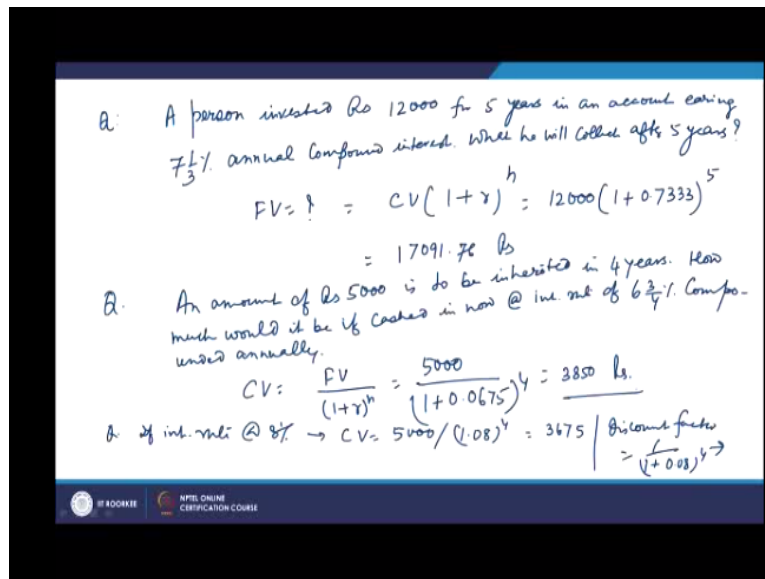 Q. A person invested Rs 12000 for 5 years in an account earing
7 1/3 % annual Compound interest. What he will collect after 5 years?
FV = ? = CV(1+r)^n = 12000(1+0.7333)^5
= 17091.76 Rs
Q. An amount of Rs 5000 is to be inherited in 4 years. How
much would it be if cashed in now @ int. rate of 6 3/4 %. Compo-
unded annually.
CV = FV/(1+r)^n = 5000/(1+0.0675)^4 = 3850 Rs.
Q. If int. rate @ 8% → CV = 5000/(1.08)^4 = 3675 | Discount factor
= 1/(1+0.08)^4 →
IIT ROORKEE NPTEL ONLINE
CERTIFICATION COURSE